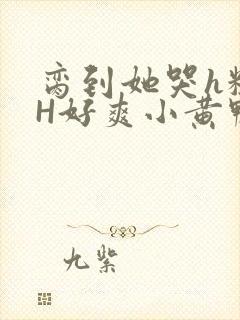 脔到她哭h粗
H好爽小黄鸭
九紫